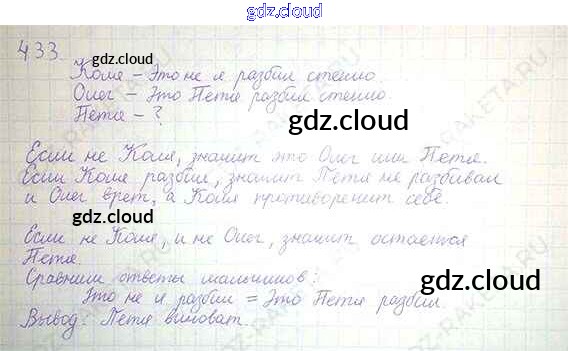 gdz.cloud
433
gdz.cloud
Коля – Это не я разбил стекло.
Олег – Это Петя разбил стекло.
Петя – ?
gdz.cloud
Если не Коля, значит это Олег или Петя.
Если Коля разбил, значит Петя не разбивал
и Олег врет, а Коля противоречит себе.
gdz.cloud
Если не Коля, и не Олег, значит остается
Петя.
Сравним ответы мальчиков:
gdz.cloud
Это не я разбил = Это Петя разбил.
Вывод: Петя виноват.